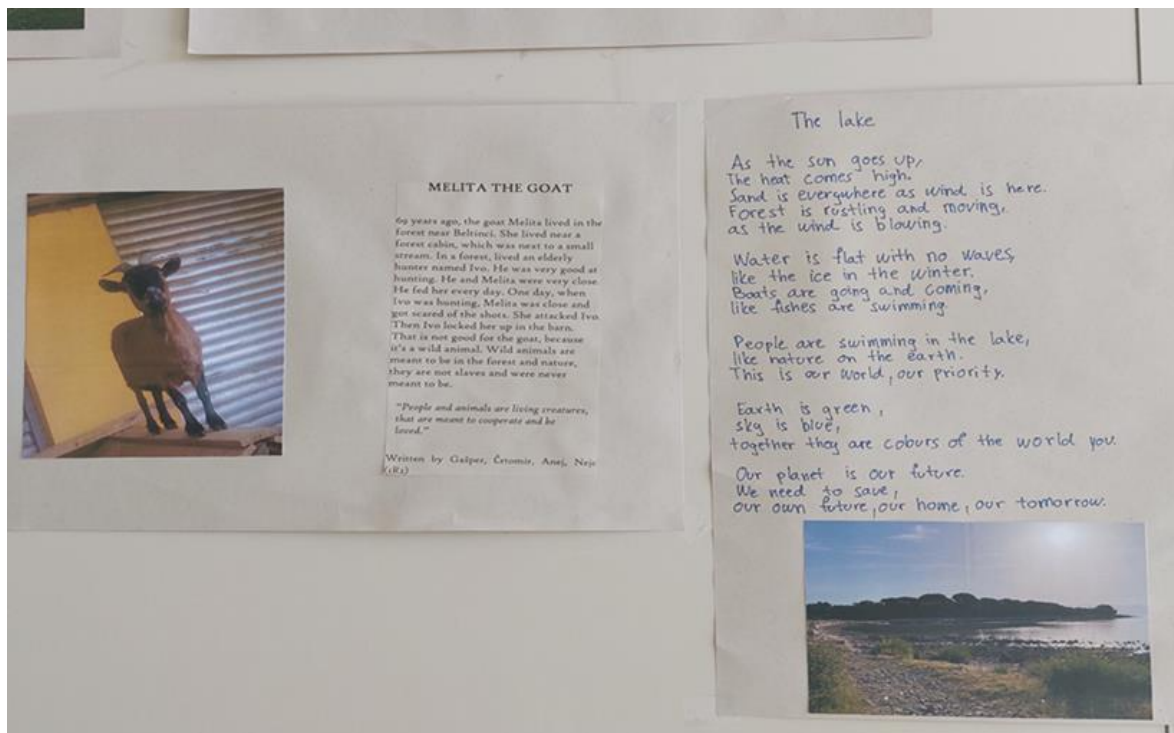 MELITA THE GOAT
69 years ago, the goat Melita lived in the
forest near Beltinci. She lived near a
forest cabin, which was next to a small
stream. In a forest, lived an elderly
hunter named Ivo. He was very good at
hunting. He and Melita were very close.
He fed her every day. One day, when
Ivo was hunting, Melita was close and
got scared of the shots. She attacked Ivo.
Then Ivo locked her up in the barn.
That is not good for the goat, because
it's a wild animal. Wild animals are
meant to be in the forest and nature,
they are not slaves and were never
meant to be.
"People and animals are living creatures,
that are meant to cooperate and be
loved."
Written by Gašper, Črtomir, Anej, Nejc
The lake
As the sun goes up,
The heat comes high.
Sand is everywhere as wind is here.
Forest is rustling and moving,
as the wind is blowing.
Water is flat with no waves,
like the ice in the winter.
Boats are going and coming,
like fishes are swimming.
People are swimming in the lake,
like nature on the earth.
This is our world, our priority.
Earth is green,
sky is blue,
together they are colours of the world you.
Our planet is our future.
We need to save,
our own future, our home, our tomorrow.